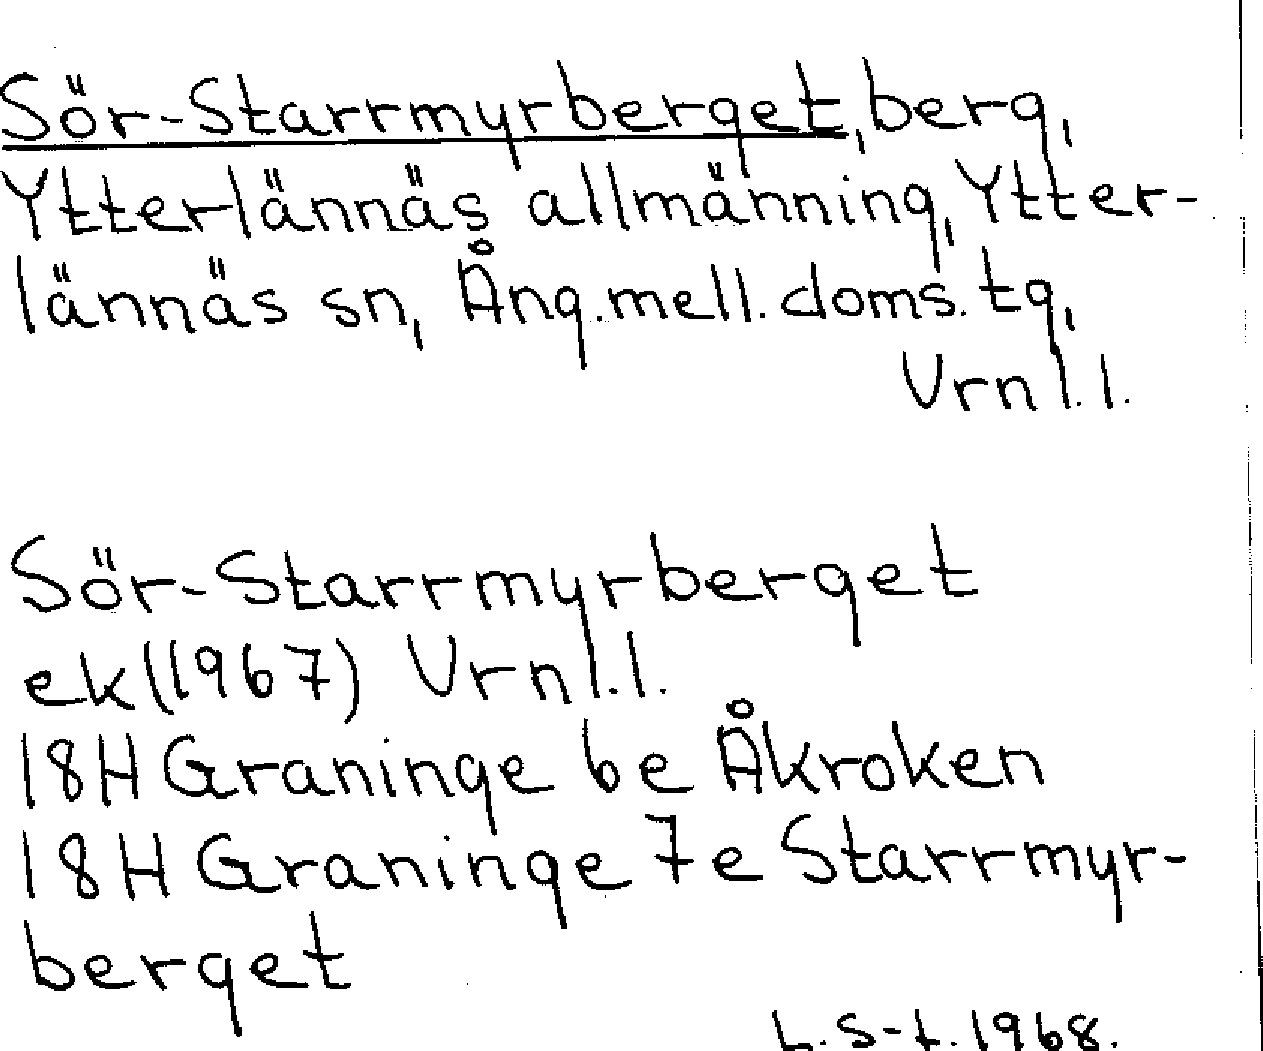 Sör-Starrmyrberget, berg,
Ytterlännäs allmänning, Ytter-
lännäs sn, Ång.mell.doms.tg,
Vrnl.l.
Sör-Starrmyrberget
ek(1967) Vrnl.l.
18H Graninge 6e Åkroken
18H Graninge 7e Starrmyr-
berget
L.S-t.1968.